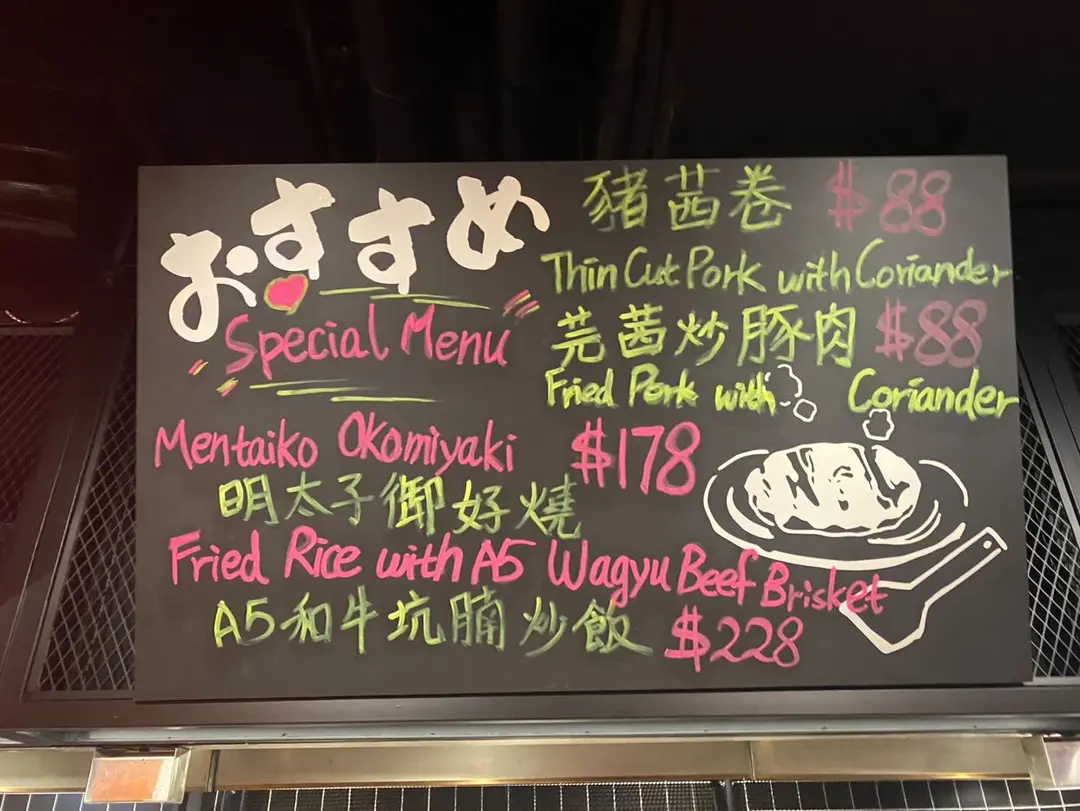 おすすめ
Special Menu
Mentaiko Okomiyaki $178
明太子御好燒
Fried Rice with A5 Wagyu Beef Brisket
A5和牛坑腩炒飯 $228
豬茜卷 $88
Thin Cut Pork with Coriander
芫茜炒豚肉 $88
Fried Pork with Coriander